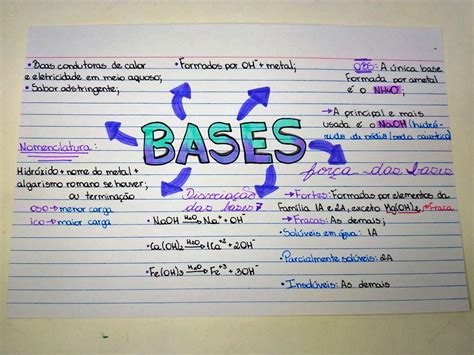 • Boas condutoras de calor
e eletricidade em meio aquoso;
• Sabor adstringente;
• Formados por OH⁻ + metal;
OBS: A única base
Formada por ametal
é o NH₄OH
→ A principal e mais
usada é o NaOH (hidró-
xido de sódio/soda caustica)
BASES
Nomenclatura:
Hidróxido + nome do metal +
algarismo romano se houver;
ou terminação
oso → menor carga
ico → maior carga
Dissociação
das bases
• NaOH H₂O→ Na⁺ + OH⁻
• Ca(OH)₂ H₂O→ 1Ca⁺² + 2OH⁻
• Fe(OH)₃ H₂O→ Fe⁺³ + 3OH⁻
força das bases
→ Fortes: Formadas por elementos da
Família 1A e 2A, exceto Mg(OH)₂ → Fraca
→ Fracas: As demais;
• Solúveis em água: 1A
• Parcialmente solúveis: 2A
• Insolúveis: As demais